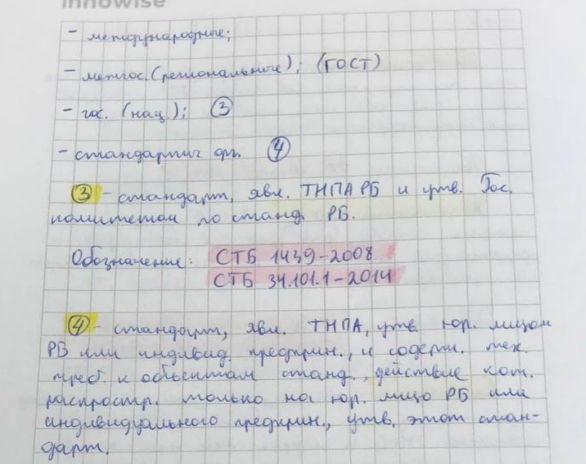 innowise
- международные;
- межгос. (региональные); (ГОСТ)
- гос. (нац.); ③
- стандарты орг. ④
③ - стандарт, явл. ТНПА РБ и утв. Гос.
комитетом по станд. РБ.
Обозначение: СТБ 1439-2008
СТБ 34.101.1-2014
④ - стандарт, явл. ТНПА, утв. юр. лицом
РБ или индивид. предприн., и содерж. тех.
треб. к объектам станд., действие кот.
распростр. только на юр. лицо РБ или
индивидуального предприн., утв. этот стан-
дарт.